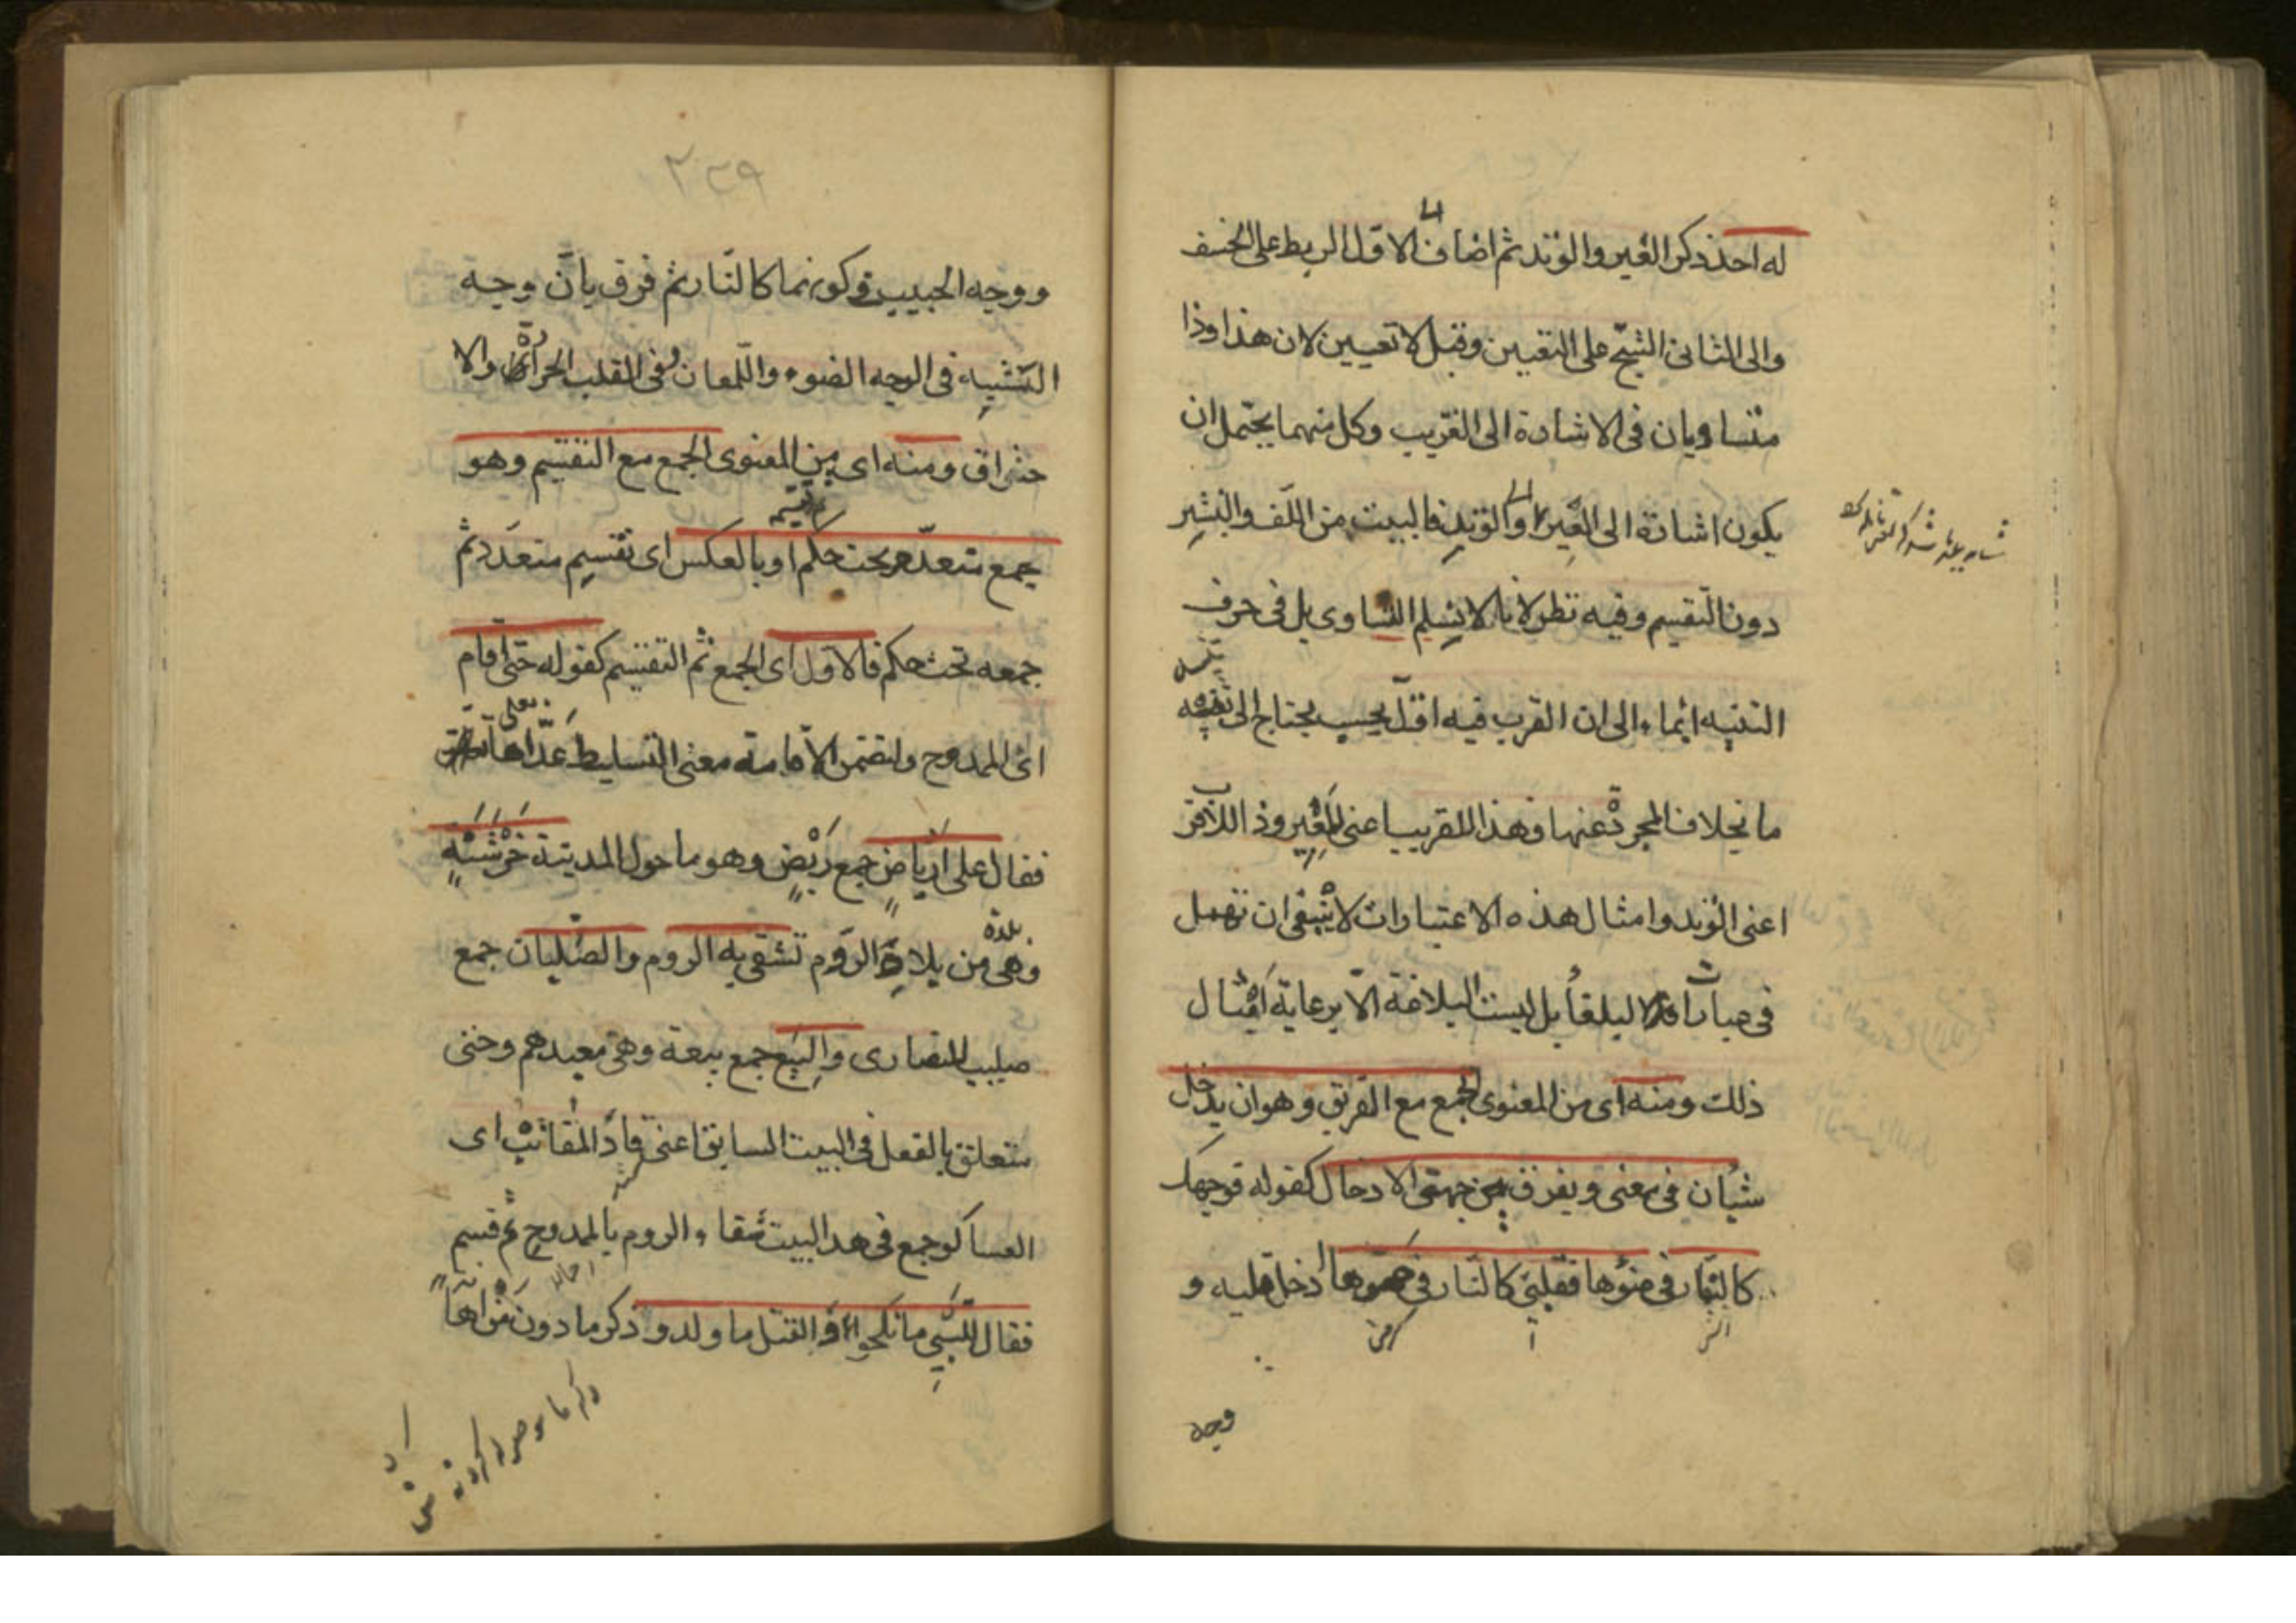 له احد ذكر العير والوتد ثم اضاف الى الاول الربط على الخسف
والى الثانى الشج على التعيين وقيل لا تعيين لان هذا وذا
متساويان فى الاشارة الى القريب وكل منهما يحتمل ان
يكون اشارة الى العير والى الوتد فالبيت من اللف والنشر
دون التقسيم وفيه نظر لانا لا نسلم التساوى بل فى حرف
التنبيه ايماء الى ان القرب فيه اقل بحيث يحتاج الى تنبيه
ما بخلاف المجرد عنها فهذا للقريب اعنى العير وذا للاقرب
اعنى الوتد وامثال هذه الاعتبارات لا ينبغى ان تهمل
فى عبارات البلغاء بل ليست البلاغة الا برعاية امثال
ذلك ومنه اى من المعنوى الجمع مع التفريق وهو ان يدخل
شيئان فى معنى ويفرق بين جهتى الادخال كقوله فوجهك
كالنار فى ضوئها فقلبى كالنار فى حرها ادخل قلبه و
وجه
٢٢٩
ووجه الحبيب فى كونهما كالنار ثم فرق بان وجه
التشبيه فى الوجه الضوء واللمعان وفى القلب الحرارة والا
حتراق ومنه اى من المعنوى الجمع مع التقسيم وهو
جمع متعدد تحت حكم او بالعكس اى تقسيم متعدد ثم
جمعه تحت حكم فالاول اى الجمع ثم التقسيم كقوله حتى اقام
اى الممدوح ولتضمن الاقامة معنى التسليط عداها بعلى
فقال على ارباض جمع ربض وهو ما حول المدينة خرشنة
وهى بلدة من بلاد الروم تشقى به الروم والصلبان جمع
صليب للنصارى والبيع جمع بيعة وهى معبدهم وحتى
متعلق بالفعل فى البيت السابق اعنى قاد المقانب اى
العساكر جمع فى هذا البيت شقاء الروم بالممدوح ثم قسم
فقال للسبى ما نكحوا والقتل ما ولدوا ذكر ما دون من اها